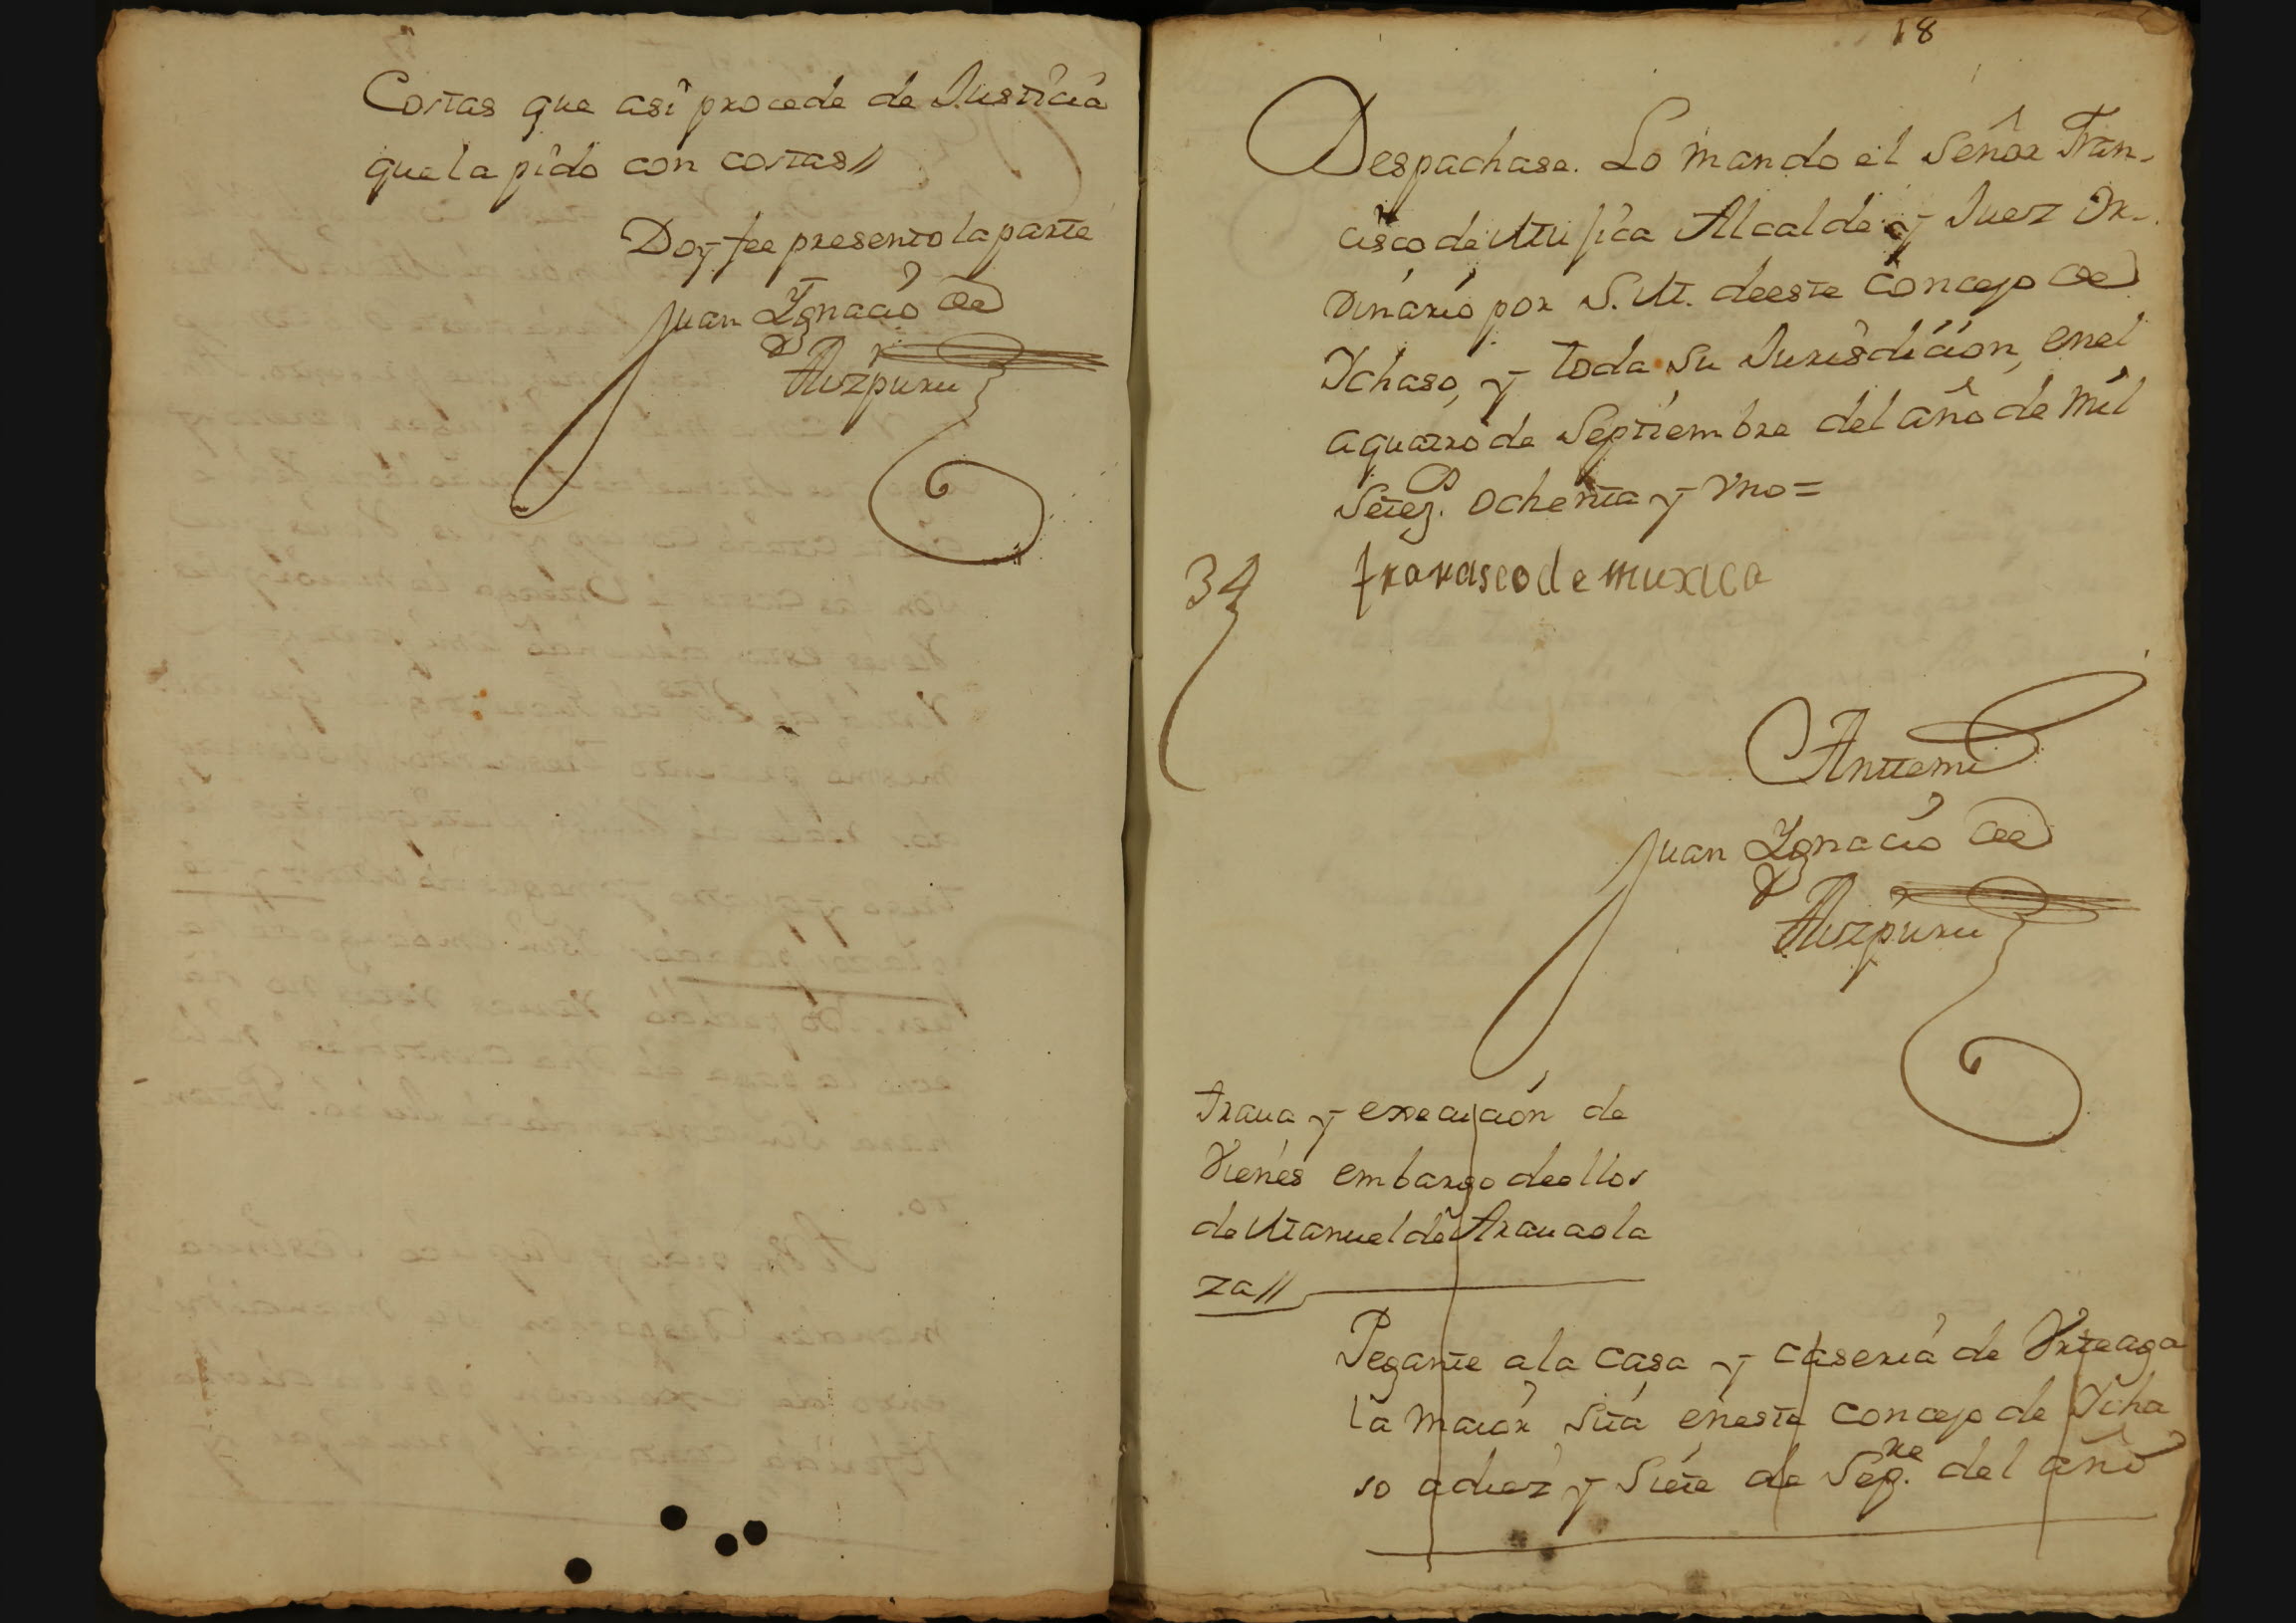 Costas que asi procede de Justicia
que la pido con costas//
Doy fee presento la parte
Juan Ygnacio de
Aizpuru
18
Despachase. Lo mando el Señor Fran-
cisco de Mujica Alcalde y Juez Or-
dinario por S.M. de este Concejo de
Ychaso, y toda su Jurisdicion, en el
a quatro de Septiembre del año de mil
Setez.os ochenta y Vno=
franciscode muxica
Antemi
Juan Ygnacio de
Aizpuru
Traua y execucion de
Vienes embargo deellos
de Manuel de Arauaola
za//
Pegante a la Casa y caseria de Vrteaga
la maior sita en este concejo de Ycha
so a diez y Siete de Sep.re del año